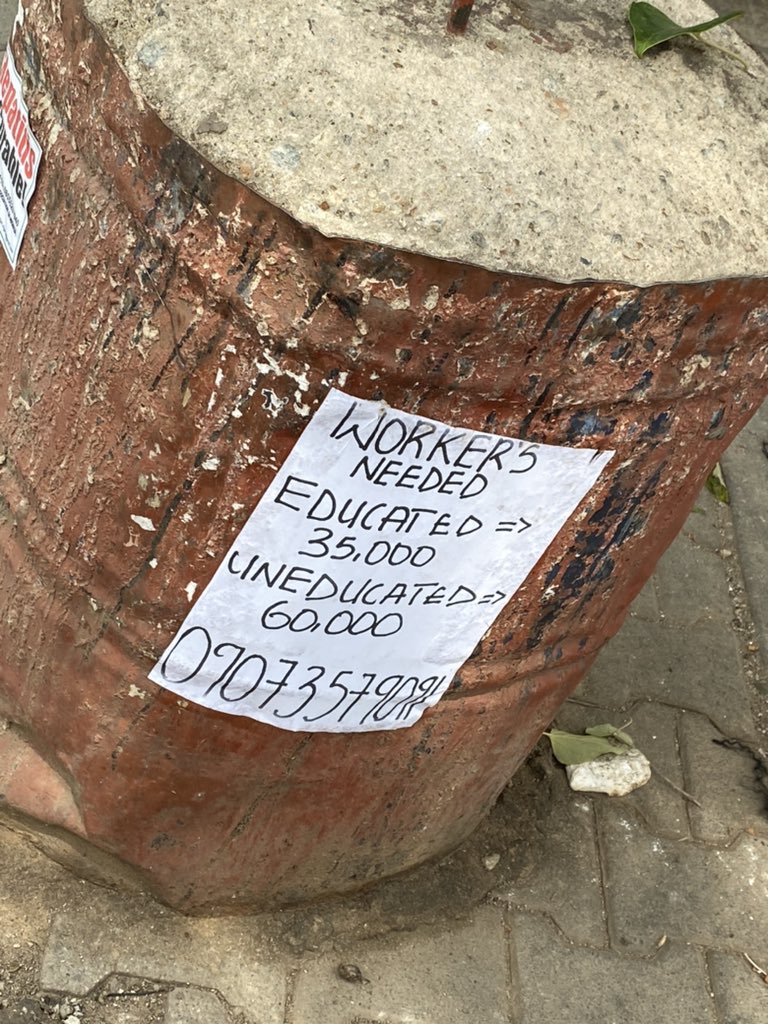 WORKER'S
NEEDED
EDUCATED =>
35,000
UNEDUCATED =>
60,000